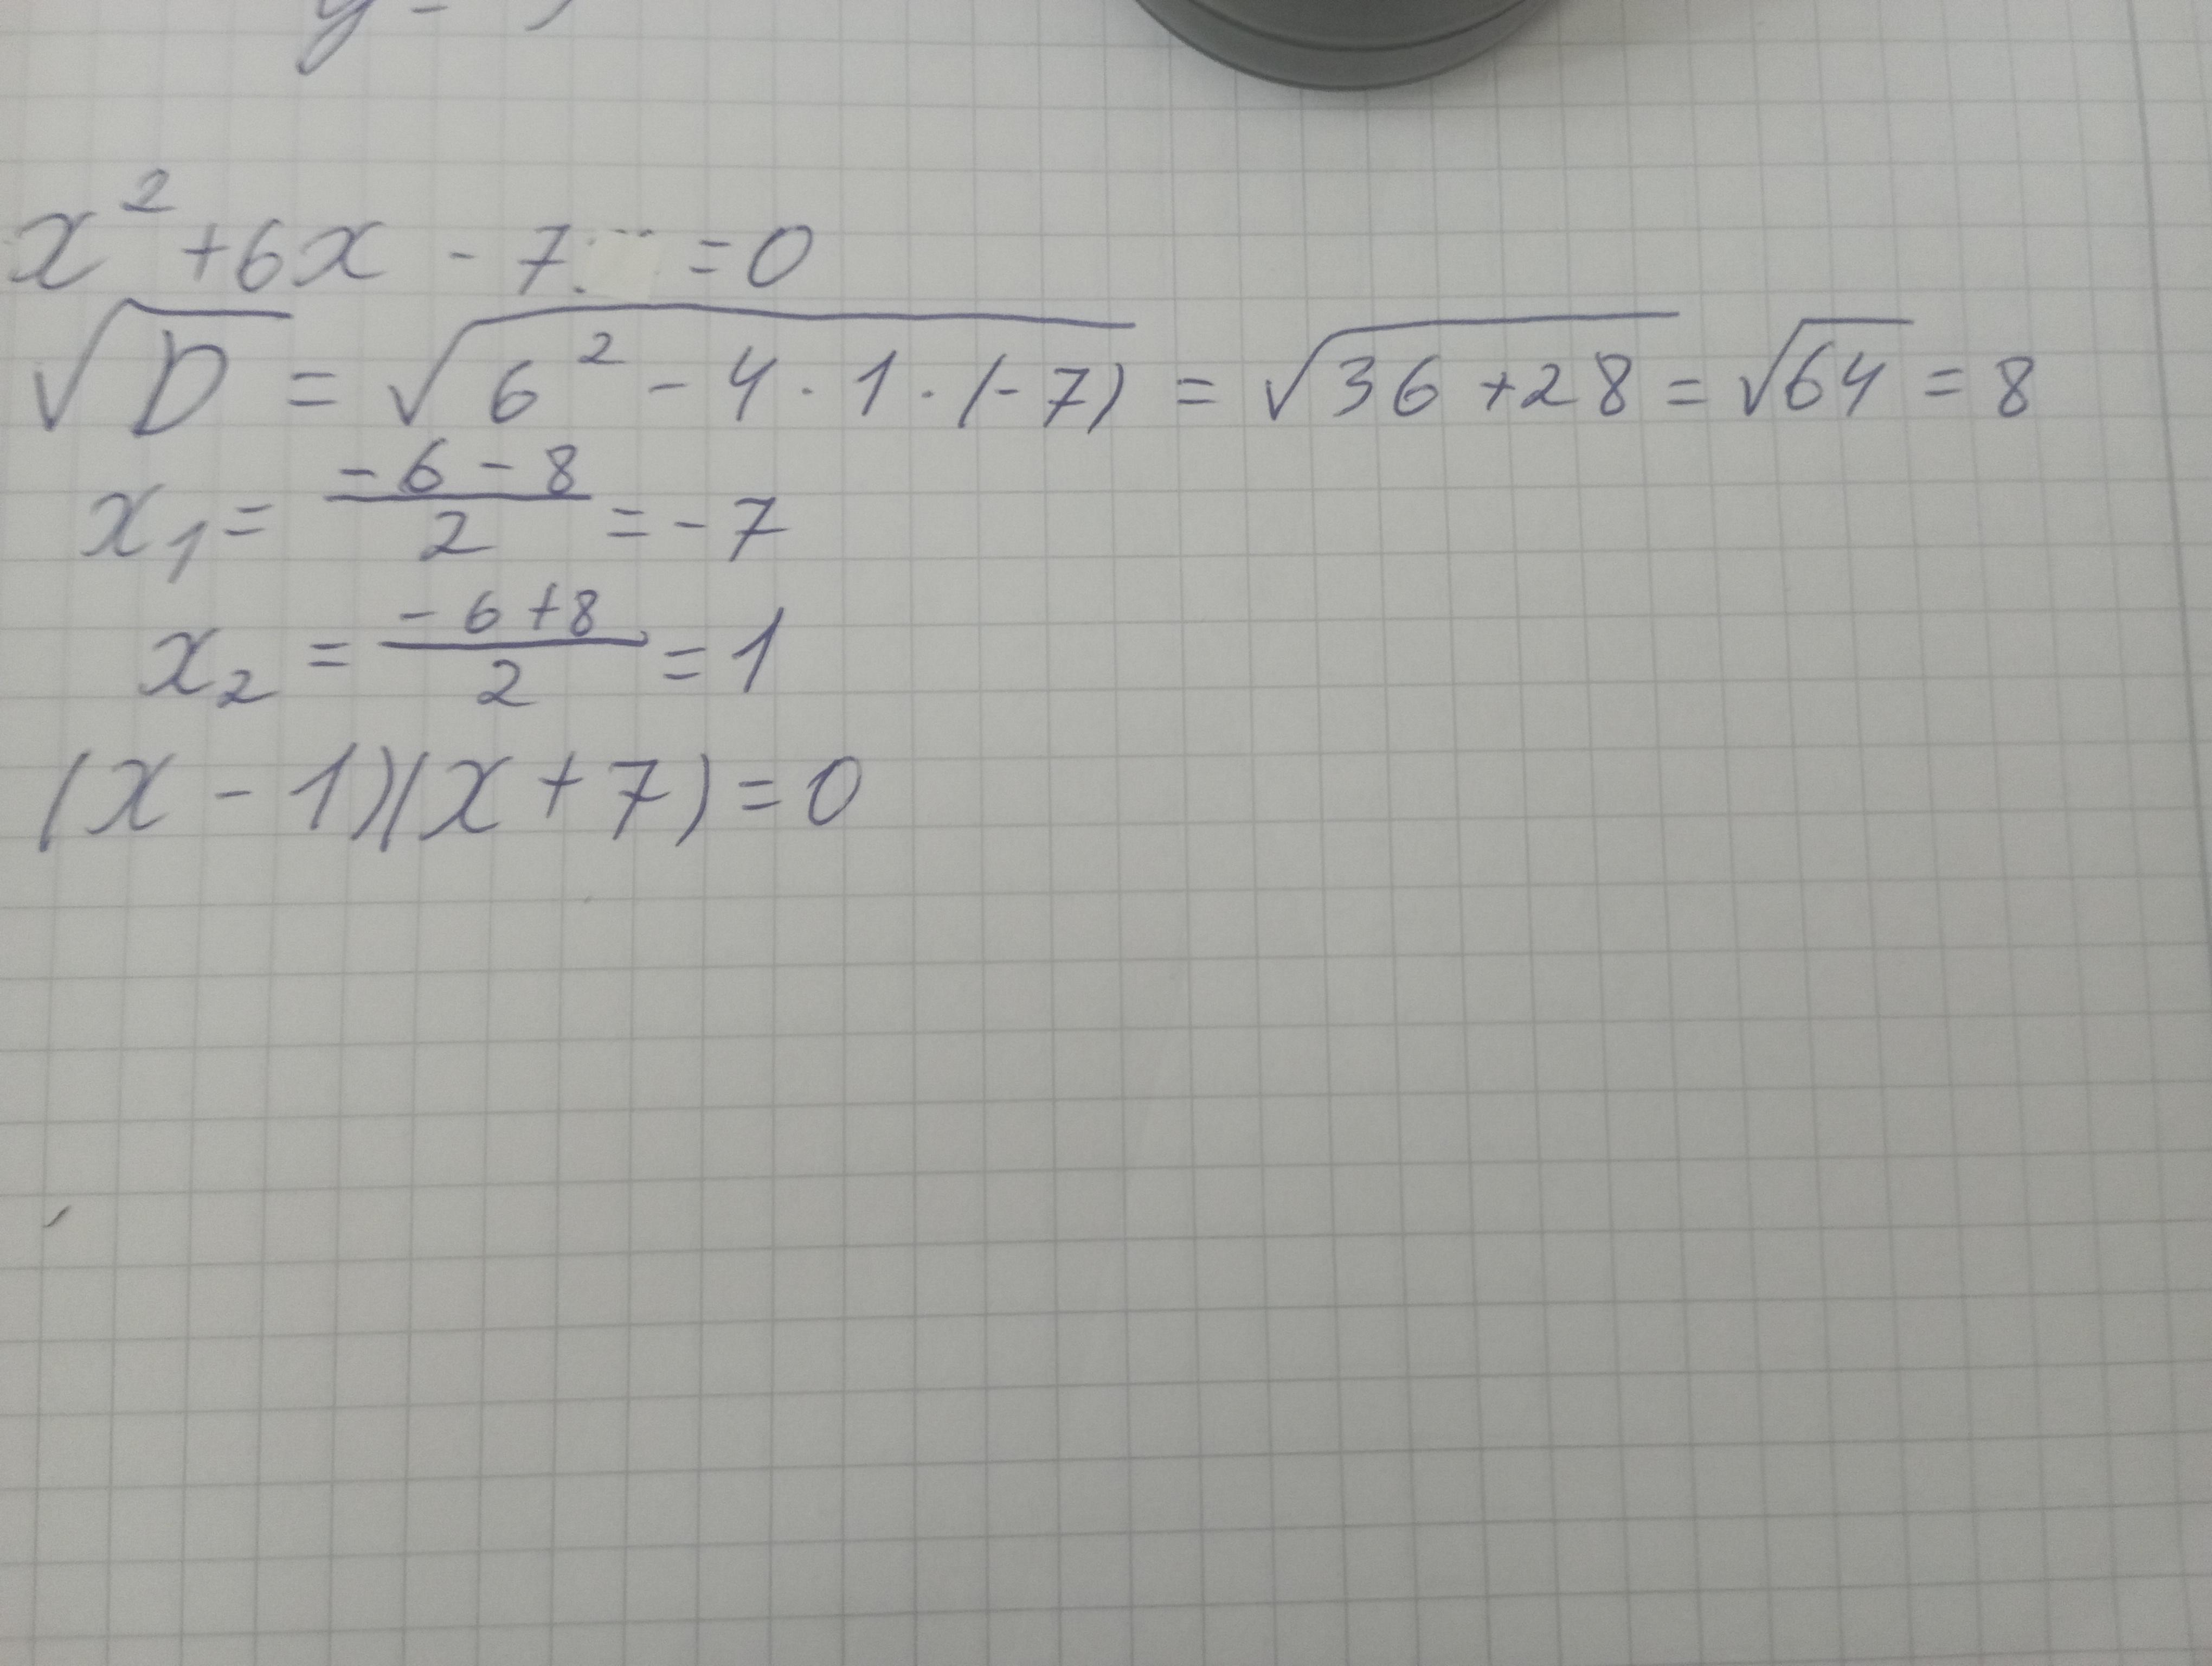 y =
x² + 6x - 7 = 0
√D = √(6² - 4 · 1 · (-7)) = √(36 + 28) = √64 = 8
x₁ = (-6 - 8)/2 = -7
x₂ = (-6 + 8)/2 = 1
(x - 1)(x + 7) = 0